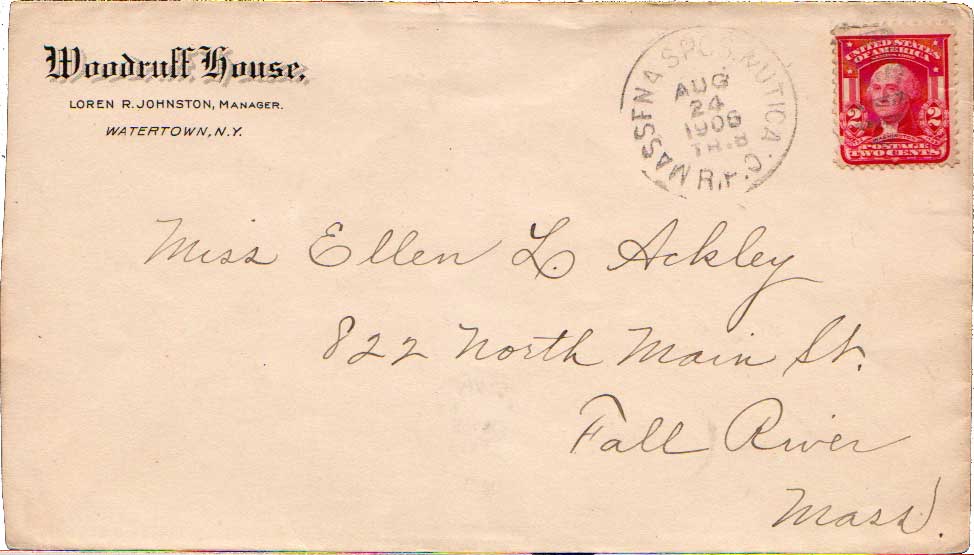 Woodruff House.
LOREN R. JOHNSTON, MANAGER.
WATERTOWN, N.Y.
MASSENA SPGS. & UTICA. R.P.O.
AUG
24
1906
TR.8
UNITED STATES
OF AMERICA
2 2
POSTAGE
TWO CENTS
Miss Ellen L. Ackley
822 North Main St.
Fall River
Mass.